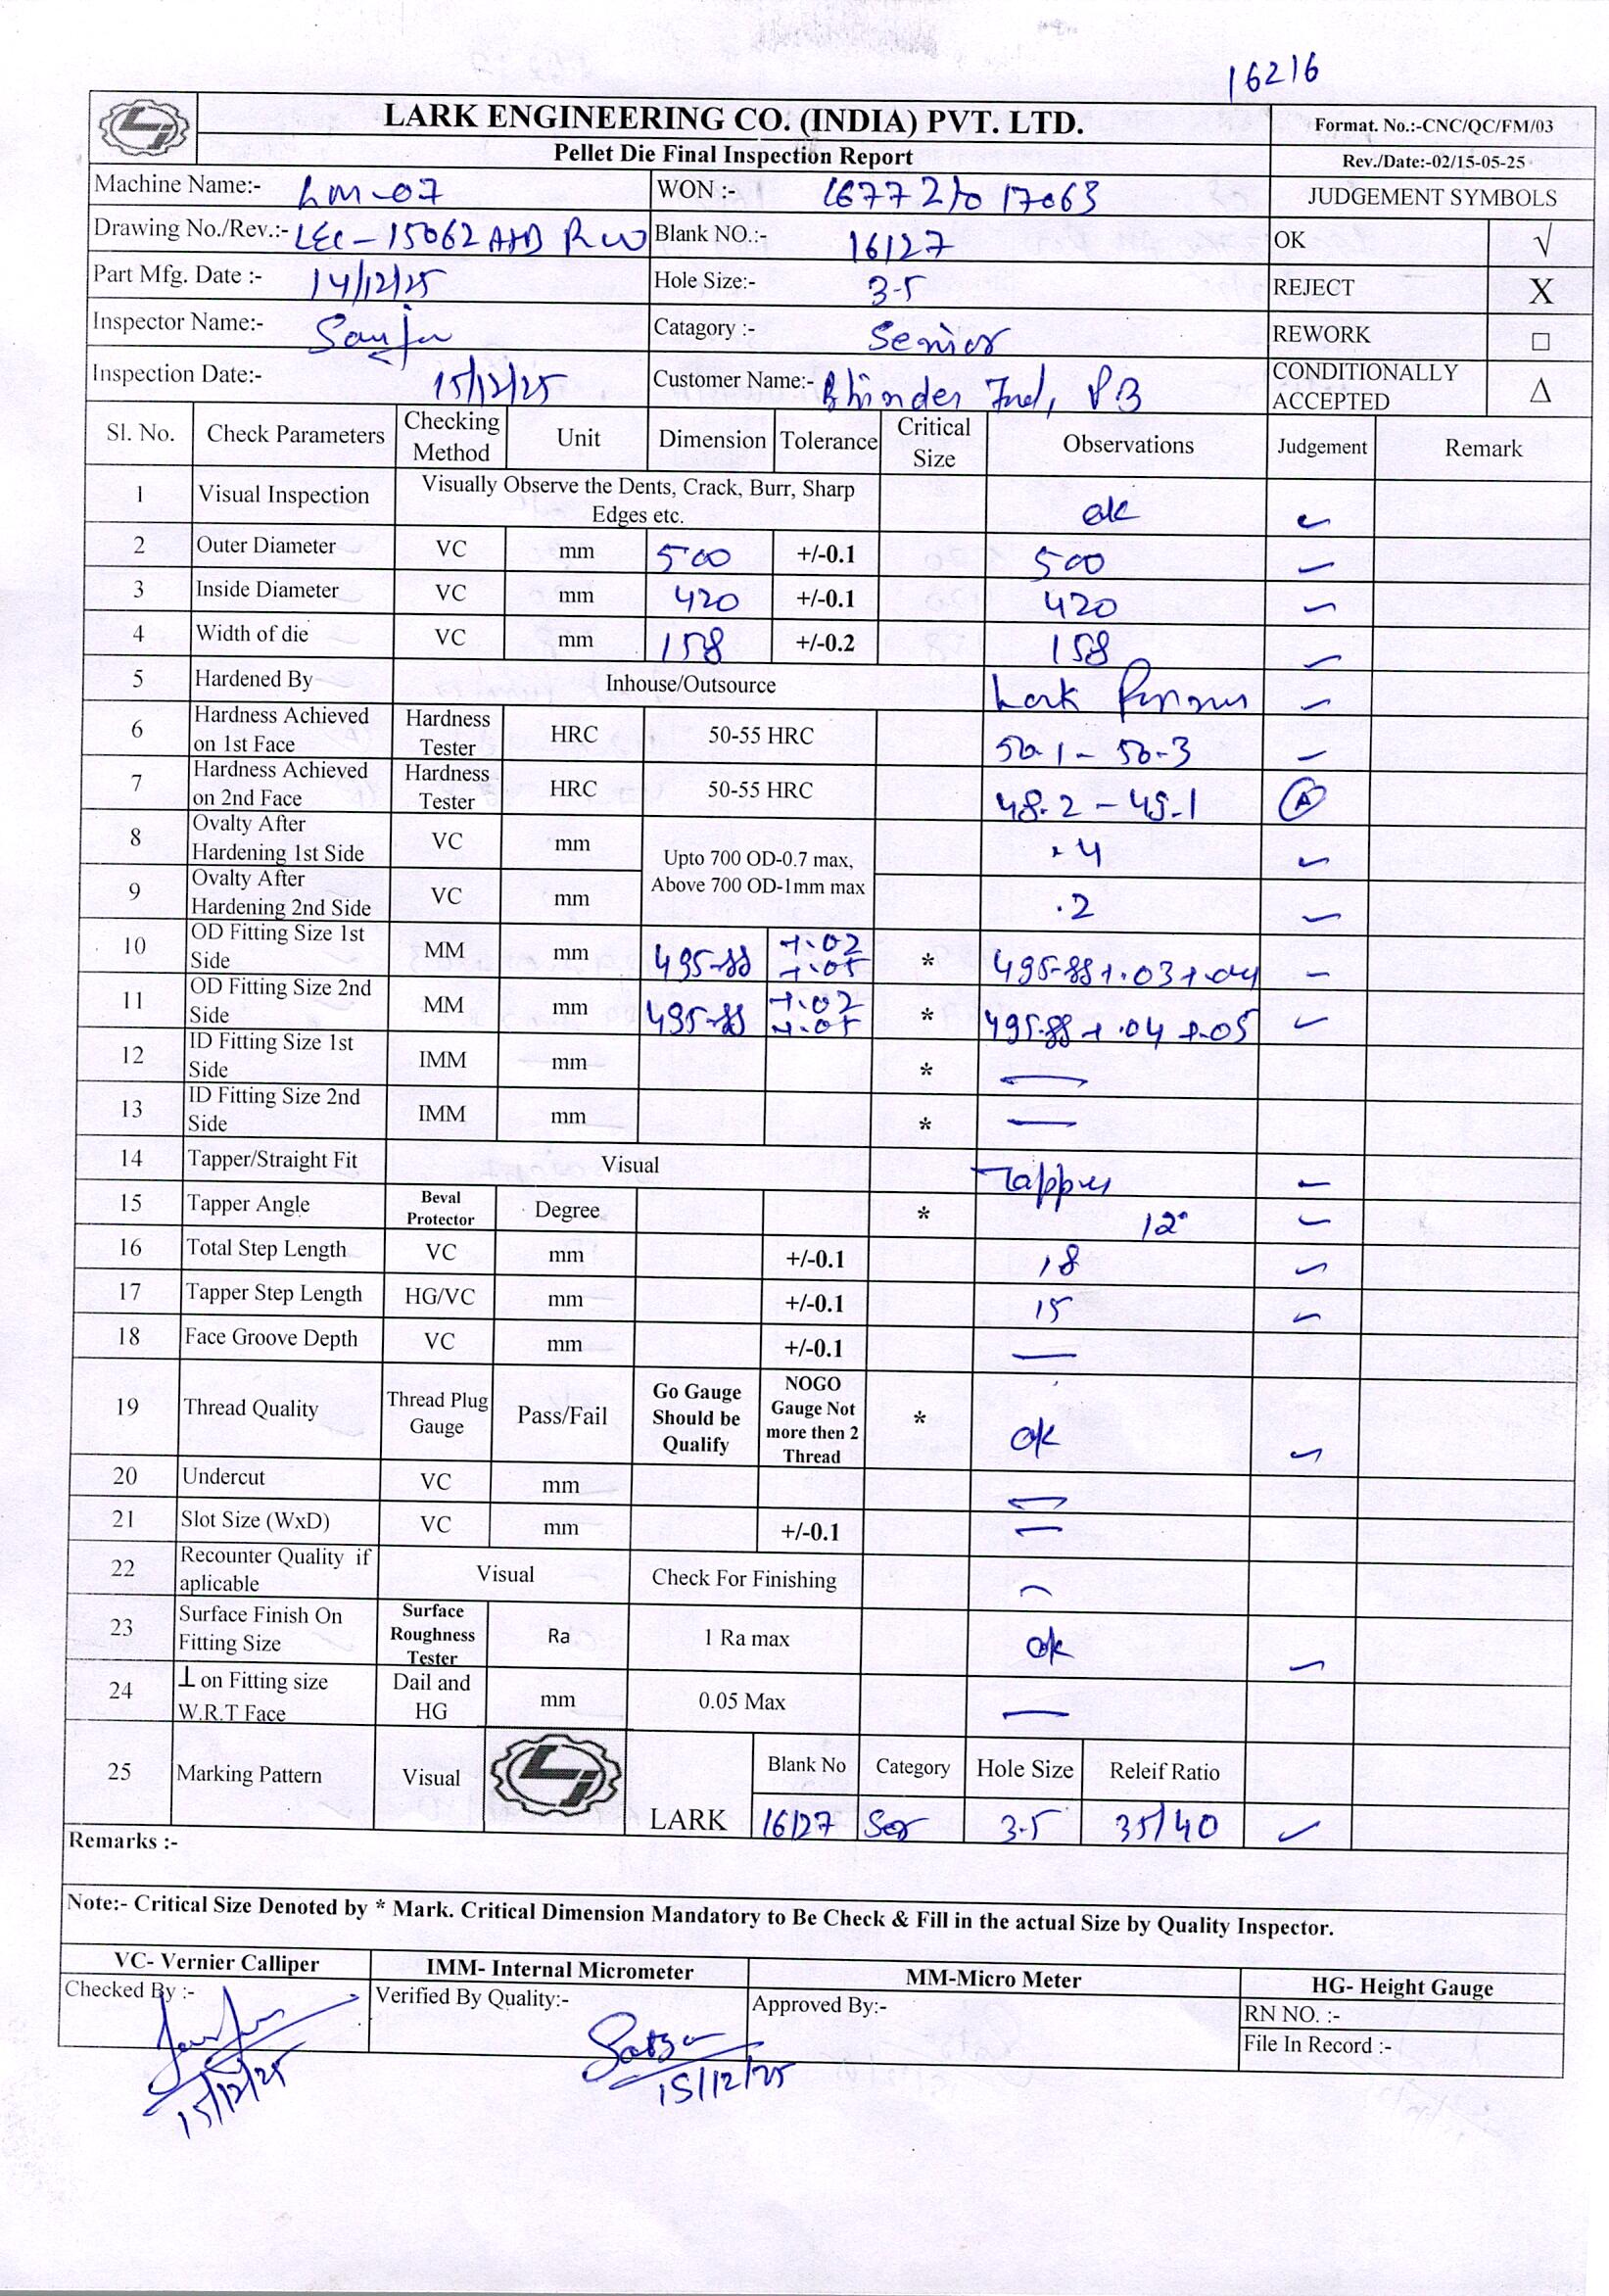 16216
LARK ENGINEERING CO. (INDIA) PVT. LTD.
Format. No.:-CNC/QC/FM/03
Pellet Die Final Inspection Report
Rev./Date:-02/15-05-25
Machine Name:- LM-07 WON :- 16772 to 17063 JUDGEMENT SYMBOLS
Drawing No./Rev.:- LEC-15062 Blank NO.:- 16127 OK √
Part Mfg. Date :- 14/12/25 Hole Size:- 3-5 REJECT X
Inspector Name:- Sanju Catagory :- Senior REWORK □
Inspection Date:- 15/12/25 Customer Name:- Bhinder Ind, PB CONDITIONALLY ACCEPTED Δ
Sl. No. Check Parameters Checking Method Unit Dimension Tolerance Critical Size Observations Judgement Remark
1 Visual Inspection Visually Observe the Dents, Crack, Burr, Sharp Edges etc. ok
2 Outer Diameter VC mm 500 +/-0.1 500
3 Inside Diameter VC mm 420 +/-0.1 420
4 Width of die VC mm 158 +/-0.2 158
5 Hardened By Inhouse/Outsource Lark
6 Hardness Achieved on 1st Face Hardness Tester HRC 50-55 HRC 50-1 - 50-3
7 Hardness Achieved on 2nd Face Hardness Tester HRC 50-55 HRC 48.2 - 49-1
8 Ovalty After Hardening 1st Side VC mm Upto 700 OD-0.7 max, Above 700 OD-1mm max .4
9 Ovalty After Hardening 2nd Side VC mm .2
10 OD Fitting Size 1st Side MM mm 495-88 +.02 +.05 * 495-88 +.03 +.04
11 OD Fitting Size 2nd Side MM mm 495-88 +.02 +.05 * 495-88 + .04 +.05
12 ID Fitting Size 1st Side IMM mm * —
13 ID Fitting Size 2nd Side IMM mm * —
14 Tapper/Straight Fit Visual Tapper
15 Tapper Angle Beval Protector Degree * 12°
16 Total Step Length VC mm +/-0.1 18
17 Tapper Step Length HG/VC mm +/-0.1 15
18 Face Groove Depth VC mm +/-0.1 —
19 Thread Quality Thread Plug Gauge Pass/Fail Go Gauge Should be Qualify NOGO Gauge Not more then 2 Thread * ok
20 Undercut VC mm —
21 Slot Size (WxD) VC mm +/-0.1 —
22 Recounter Quality if aplicable Visual Check For Finishing —
23 Surface Finish On Fitting Size Surface Roughness Tester Ra 1 Ra max ok
24 ⊥ on Fitting size W.R.T Face Dail and HG mm 0.05 Max —
25 Marking Pattern Visual LARK Blank No Category Hole Size Releif Ratio
16127 Ser 3-5 35/40
Remarks :-
Note:- Critical Size Denoted by * Mark. Critical Dimension Mandatory to Be Check & Fill in the actual Size by Quality Inspector.
VC- Vernier Calliper IMM- Internal Micrometer MM-Micro Meter HG- Height Gauge
Checked By :- Verified By Quality:- Approved By:- RN NO. :-
File In Record :-
15/12/25 15/12/25